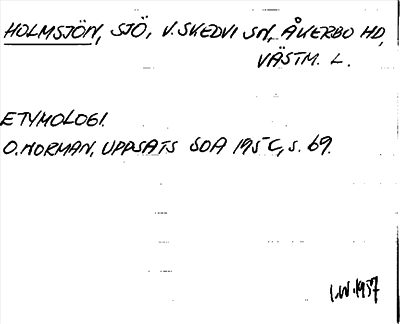 HOLMSJÖN, SJÖ, V. SKEDVI SN, ÅKERBO HD,
VÄSTM. L.
ETYMOLOGI.
O. NORMAN, UPPSATS SOA 195C, S. 69.
I.W. 1957